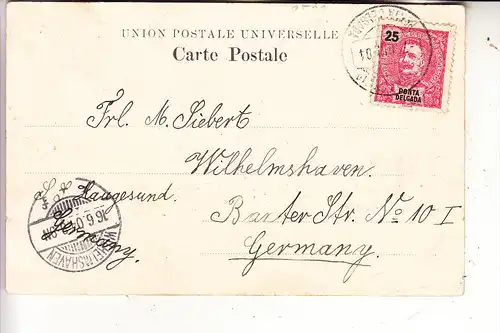 UNION POSTALE UNIVERSELLE
Carte Postale
25
PORTA
DELGADA
Frl. M. Siebert
Wilhelmshaven.
Haugesund.
Barter Str. No 10 I
Germany.
Germany.
WILHELMSHAVEN
16.6.0